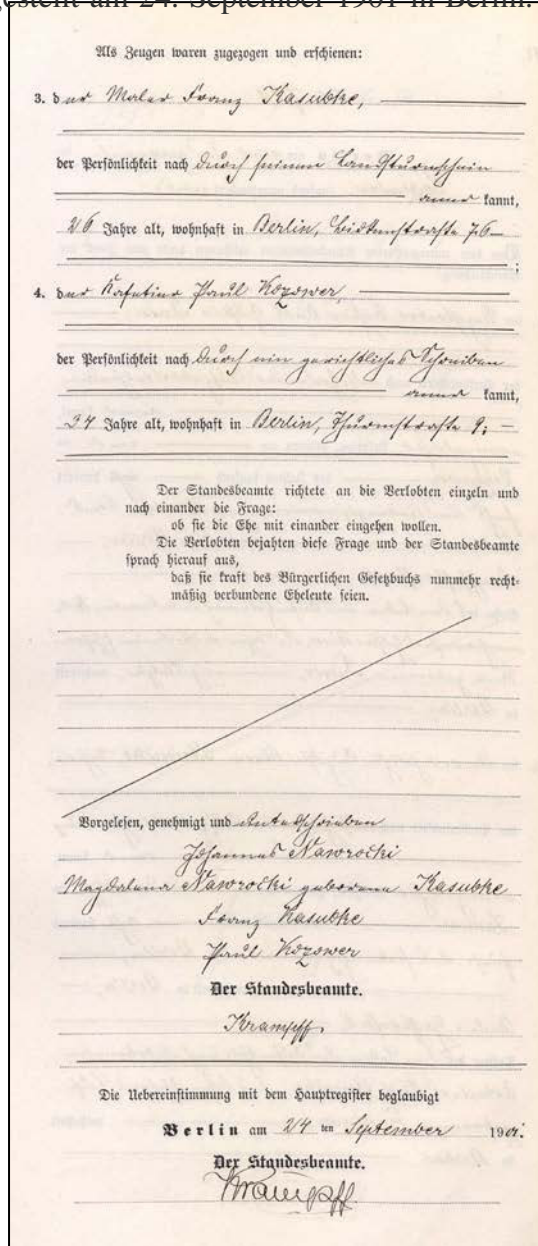 gestellt am 24. September 1901 in Berlin.
Als Zeugen waren zugezogen und erschienen:
3. der Maler Franz Kasubke,
der Persönlichkeit nach durch seinen Landsturmschein
aner kannt,
26 Jahre alt, wohnhaft in Berlin, 76
4. der Paul Kozower,
der Persönlichkeit nach durch ein gerichtliches Schreiben
aner kannt,
34 Jahre alt, wohnhaft in Berlin, Thurmstraße 9;
Der Standesbeamte richtete an die Verlobten einzeln und
nach einander die Frage:
ob sie die Ehe mit einander eingehen wollen.
Die Verlobten bejahten diese Frage und der Standesbeamte
sprach hierauf aus,
daß sie kraft des Bürgerlichen Gesetzbuchs nunmehr recht-
mäßig verbundene Eheleute seien.
Vorgelesen, genehmigt und unterschrieben
Johannes Nawrocki
Magdalena Nawrocki geborene Kasubke
Franz Kasubke
Paul Kozower
Der Standesbeamte.
Krampff.
Die Uebereinstimmung mit dem Hauptregister beglaubigt
Berlin am 24 ten September 1901.
Der Standesbeamte.
Krampff